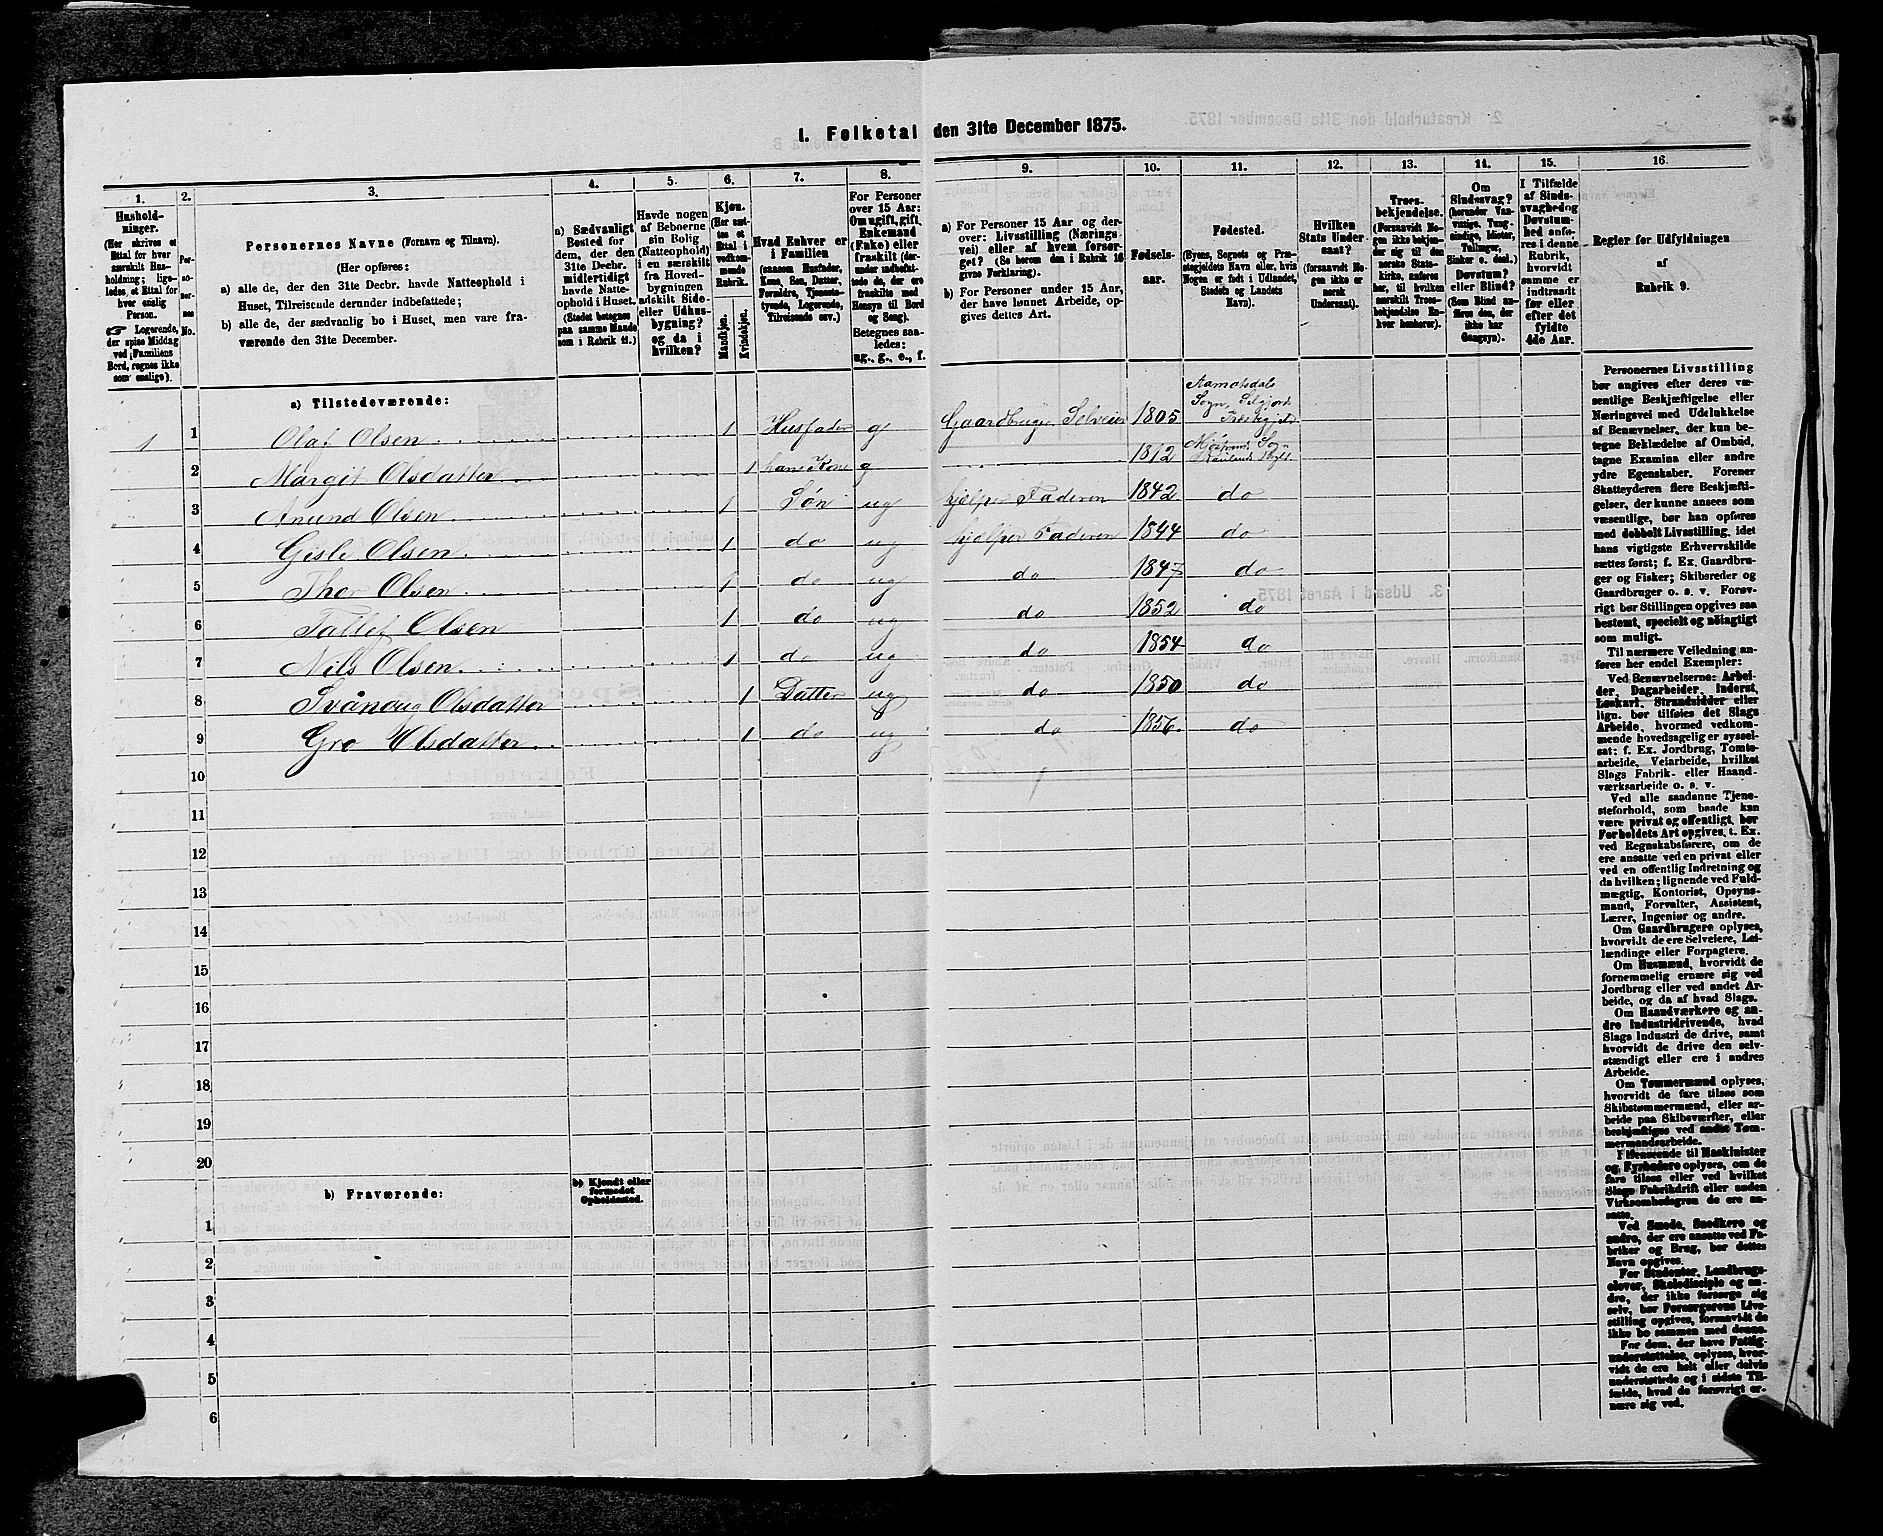 1. Folketal den 31te December 1875.
1.
2.
3.
4.
5.
6.
7.
8.
9.
10.
11.
12.
13.
14.
15.
16.
Hushold-
ninger.
(Her skrives et
Ettal for hver
særskilt Hus-
holdning; lige-
ledes, et Ettal for
hver enslig
Person.
☞ Logerende,
der spise Middag
ved Familiens
Bord, regnes ikke
som enslige).
Per-
so-
ner-
nes
No.
Personernes Navne (Fornavn og Tilnavn).
(Her opføres:
a) alle de, der den 31te Decbr. havde Natteophold i
Huset, Tilreisende derunder indbefattede;
b) alle de, der sædvanlig bo i Huset, men vare fra-
værende den 31te December.
a) Sædvanligt
Bosted for
dem, der den
31te Decbr.
midlertidigt
havde Natte-
ophold i Huset.
(Stedet betegnes
paa samme Maade
som i Rubrik 11.)
Havde nogen
af Beboerne
sin Bolig
(Natteophold)
i en særskilt
fra Hoved-
bygningen
adskilt Side-
eller Udhus-
bygning?
og da i
hvilken?
Kjøn.
(Her sæt-
tes et
Ettal i
vedkom-
mende
Rubrik.
Mandkjøn.
Kvindekjøn.
Hvad Enhver er
i Familien
(saasom Husfader,
Kone, Søn, Datter,
Forældre, Tjeneste-
tyende, Logerende,
Tilreisende osv.)
For Personer
over 15 Aar:
Om ugift, gift,
Enkemand
(Enke) eller
fraskilt (der-
under indbefat-
tede de, der ere
fraskilte med
Hensyn til Bord
og Seng).
Betegnes saa-
ledes:
ug., g., e., f.
a) For Personer 15 Aar og der-
over: Livsstilling (Nærings-
vei) eller af hvem forsør-
get? (Se herom den i Rubrik 16
givne Forklaring).
b) For Personer under 15 Aar,
der have lønnet Arbeide, op-
gives dettes Art.
Fødsels-
aar.
Fødested.
(Byens, Sognets og Præ-
stegjeldets Navn eller, hvis
Nogen er født i Udlandet,
Stedets og Landets
Navn).
Hvilken
Stats Under-
saat?
(forsaavidt No-
gen ikke er
norsk
Undersaat).
Troes-
bekjendelse.
(Forsaavidt No-
gen ikke bekjen-
der sig til den
norske Stats-
kirke, anføres
her, til hvilken
særskilt Troes-
bekjendelse En-
hver henhører).
Om
Sindssvag?
(herunder Van-
vittige, Tung-
sindige, Idioter,
Tullinger,
Sinker o. desl.)
Døvstum?
eller Blind?
(Som Blind an-
føres den, der
ikke har
Gangsyn).
I Tilfælde
af Sinds-
svaghed og
Døvstum-
hed anfø-
res i denne
Rubrik,
hvorvidt
samme er
indtraadt
før eller
efter det
fyldte
4de Aar.
Regler for Udfyldningen
af
Rubrik 9.
a) Tilstedeværende:
1 1 Olaf Olsen 1 Husfader g Gaardbruger Selveier 1805 Aamotsdals Sogn, Silgjords Præstegjeld
2 Margit Olsdatter 1 hans Kone g 1812
3 Anund Olsen 1 Søn ug hjelper Faderen 1842 do
4 Gisle Olsen 1 do ug hjelper Faderen 1844 do
5 Thor Olsen 1 do ug do 1847 do
6 Tallef Olsen 1 do ug do 1852 do
7 Nils Olsen 1 do ug do 1854 do
8 Svånaug Olsdatter 1 Datter ug do 1850 do
9 Gro Olsdatter 1 do ug do 1856 do
10
11
12
13
14
15
16
17
18
19
20
b) Fraværende:
b) Kjendt eller
formodet
Opholdssted.
1
2
3
4
5
6
Personernes Livsstilling
bør angives efter deres væ-
sentlige Beskjæftigelse eller
Næringsvei med Udelukkelse
af Benævnelser, der kun be-
tegne Beklædelse af Ombud,
tagne Examina eller andre
ydre Egenskaber. Forener
Skatteyderen flere Beskjæfti-
gelser, der kunne ansees som
væsentlige, bør han opføres
med dobbelt Livsstilling, idet
hans vigtigste Erhvervskilde
sættes først; f. Ex. Gaardbru-
ger og Fisker; Skibsreder og
Gaardbruger o. s. v. Forøv-
rigt bør Stillingen opgives saa
bestemt, specielt og nøiagtigt
som muligt.
Til nærmere Veiledning an-
føres her endel Exempler:
Ved Benævnelserne: Arbei-
der, Dagarbeider, Inderst,
Løskarl, Strandsidder eller
lign. bør tilføies det Slags
Arbeide, hvormed vedkom-
mende hovedsagelig er syssel-
sat; f. Ex. Jordbrug, Tomte-
arbeide, Veiarbeide, hvilket
Slags Fabrik- eller Haand-
værksarbeide o. s. v.
Ved alle saadanne Tjene-
steforhold, som baade kan
være privat og offentligt, bør
Forholdets Art opgives, t. Ex.
ved Regnskabsførere, om de
ere ansatte ved en privat eller
ved en offentlig Indretning og
da hvilken; lignende ved Fuld-
mægtig, Kontorist, Opsyns-
mand, Forvalter, Assistent,
Lærer, Ingeniør og andre.
Om Gaardbrugere oplyses,
hvorvidt de ere Selveiere, Lei-
lændinge eller Forpagtere.
Om Husmænd, hvorvidt de
fornemmelig ernære sig ved
Jordbrug eller ved andet Ar-
beide, og da af hvad Slags.
Om Haandværkere og an-
dre Industridrivende, hvad
Slags Industri de drive, samt
hvorvidt de drive den selv-
stændigt eller ere i andres
Arbeide.
Om Tømmermænd oplyses,
hvorvidt de fare tilsøs som
Skibstømmermænd, eller ar-
beide paa Skibsværfter, eller
beskjæftiges ved andre Tøm-
mermandsarbeide.
Henseende til Maskinister
og Fyrbødere oplyses, om de
fare tilsøs eller ved hvilket
Slags Fabrikdrift eller anden
Virksomhedsgren de ere an-
satte.
Ved Smede, Snedkere og
andre, der ere ansatte ved Fa-
briker og Brug, bør dettes
Navn opgives.
For Studenter, Landbrugs-
elever, Skoledisciple og an-
dre, der ikke forsørge sig
selv, bør Forsørgerens Livs-
stilling opgives, forsaavidt de
ikke bo sammen med denne.
For dem, der have Fattig-
understøttelse, oplyses, hvor-
vidt de ere helt eller delvis
understøttede og i sidste Til-
fælde, hvad de forøvrigt er-
nære sig ved.